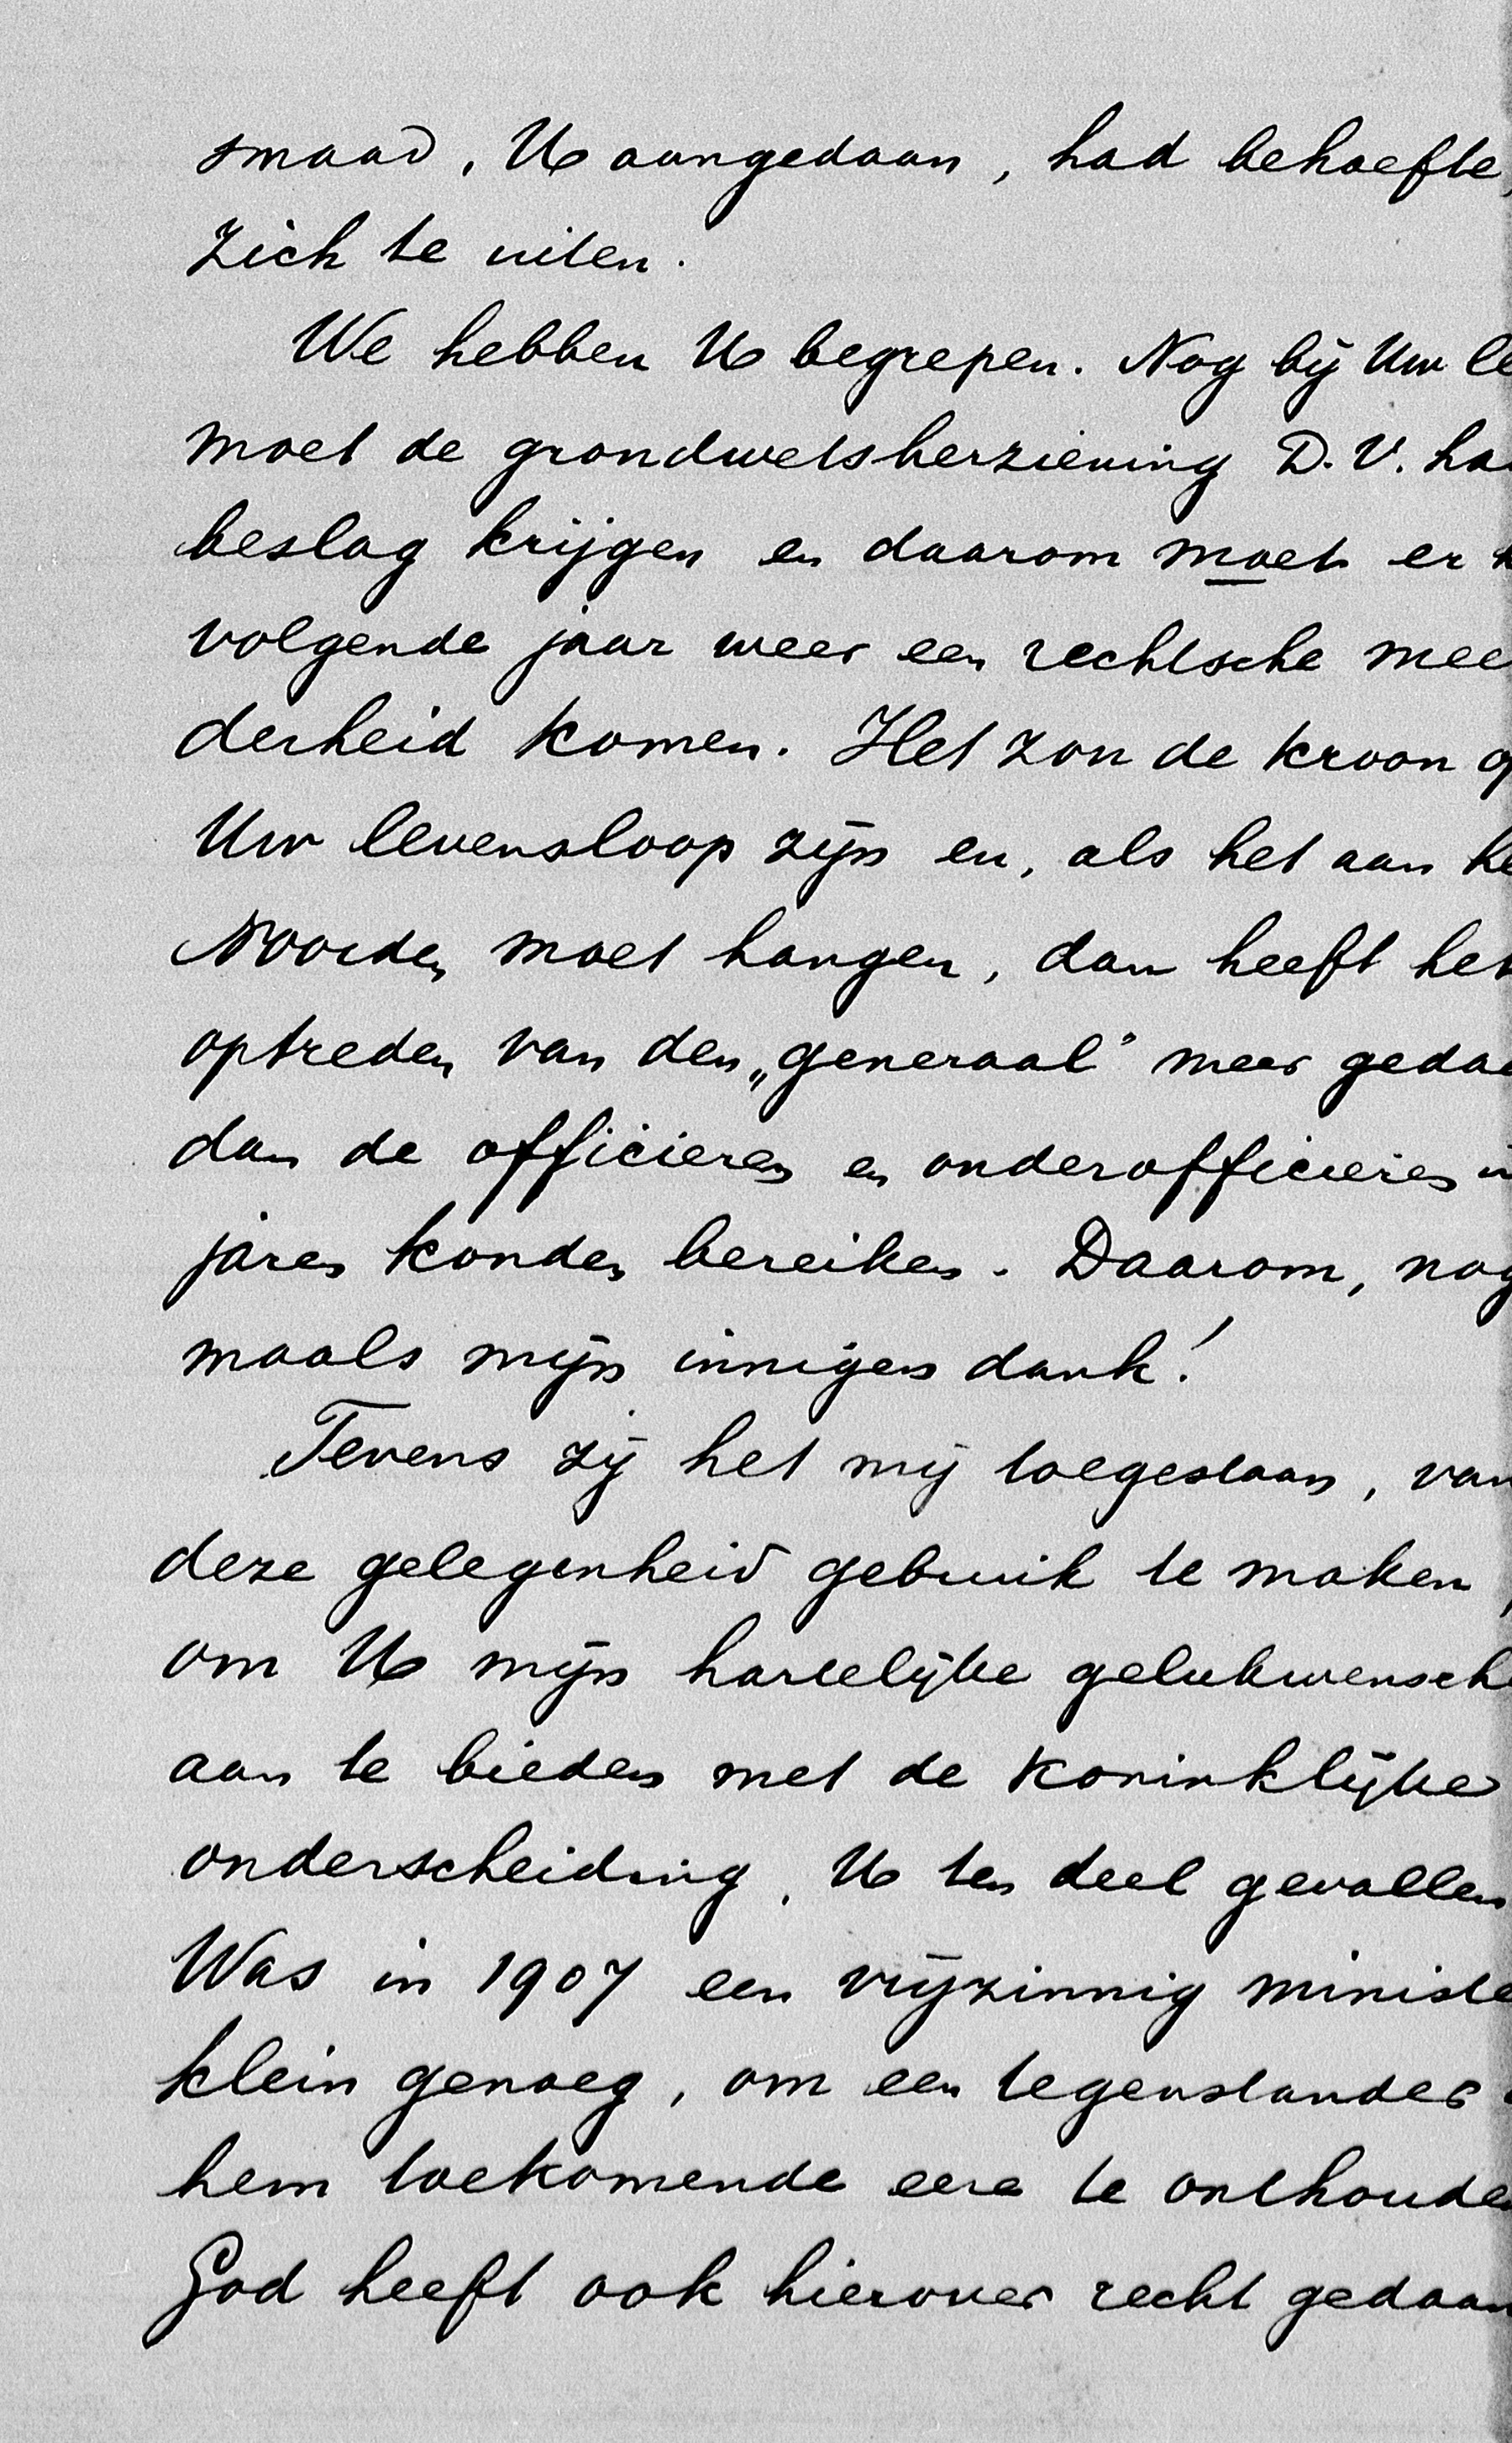 smaad, U aangedaan, had behoefte,
zich te uiten.
We hebben U begrepen. Nog bij Uw le
moet de grondwetsherziening D.V. haa
beslag krijgen en daarom moet er
volgende jaar weer een rechtsche mee
derheid komen. Het zou de kroon op
Uw levensloop zijn en, als het aan he
Noorden moet hangen, dan heeft het
optreden van den „generaal" meer gedaa
dan de officieren en onderofficieren in
jaren konden bereiken. Daarom, nog
maals mijn innigen dank!
Tevens zij het mij toegestaan, van
deze gelegenheid gebruik te maken,
om U mijn hartelijke gelukwensche
aan te bieden met de Koninklijke
onderscheiding, U ten deel gevallen
Was in 1907 een vrijzinnig ministe
klein genoeg, om een tegenstander
hem toekomende eere te onthouden
God heeft ook hierover recht gedaan